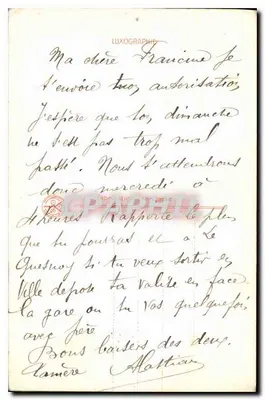 LUXOGRAPHIE
Ma chère Francine Je
t'envoie ton autorisation
J'espère que ton dimanche
ne s'est pas trop mal
passé. Nous t'attendrons
donc mercredi à
4 heures Rapporte le plus
que tu pourras et à Le
Quesnoy si tu veux sortir en
Ville dépose ta valise en face
la gare où tu vas quelquefois
avec père
Bons baisers des deux.
Ta mère